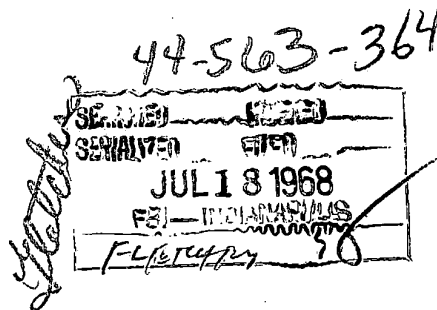 44-563-364
SEARCHED INDEXED
SERIALIZED FILED
JUL 18 1968
FBI — INDIANAPOLIS
Fletcher